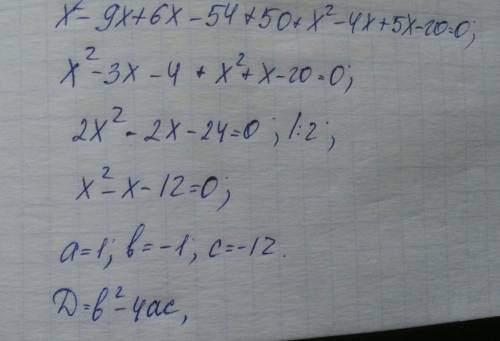 x² - 9x + 6x - 54 + 50 + x² - 4x + 5x - 20 = 0;
x² - 3x - 4 + x² + x - 20 = 0;
2x² - 2x - 24 = 0; |:2;
x² - x - 12 = 0;
a = 1; b = -1, c = -12.
Д = b² - 4ac,